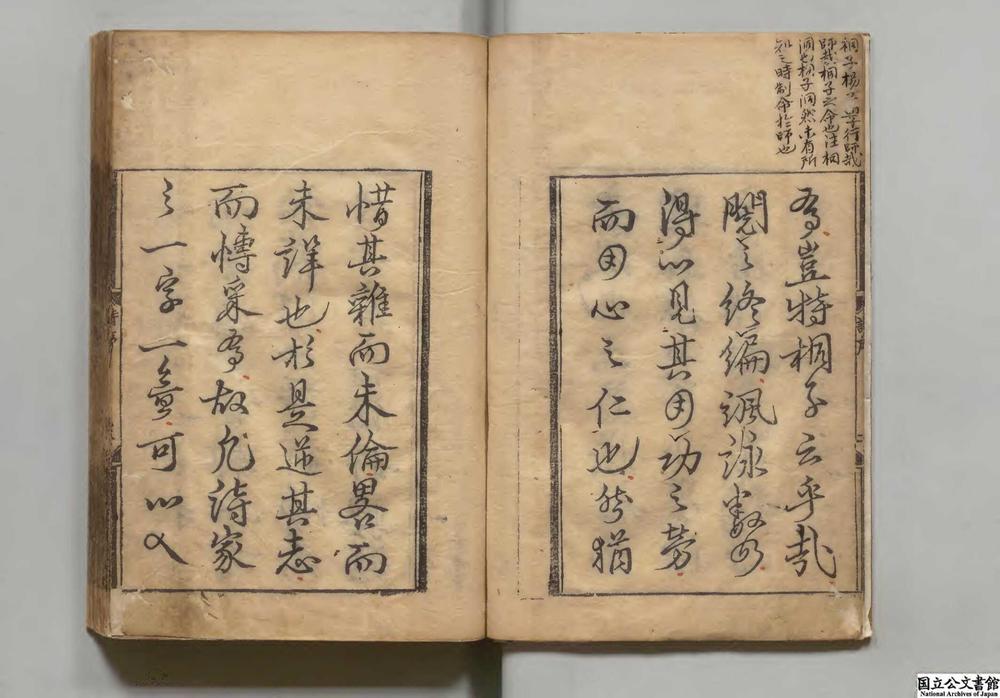 桐子楊子學行師哉
師哉桐子之命也注桐
洞也桐子洞然未有所
知之時制命於師也
焉豈特桐子云乎哉
閱之終編諷詠數四
得以見其用功之勞
而用心之仁也然猶
惜其雜而未倫畧而
未詳也於是逆其志
而博采焉故凡詩家
之一字一意可以入
国立公文書館
National Archives of Japan